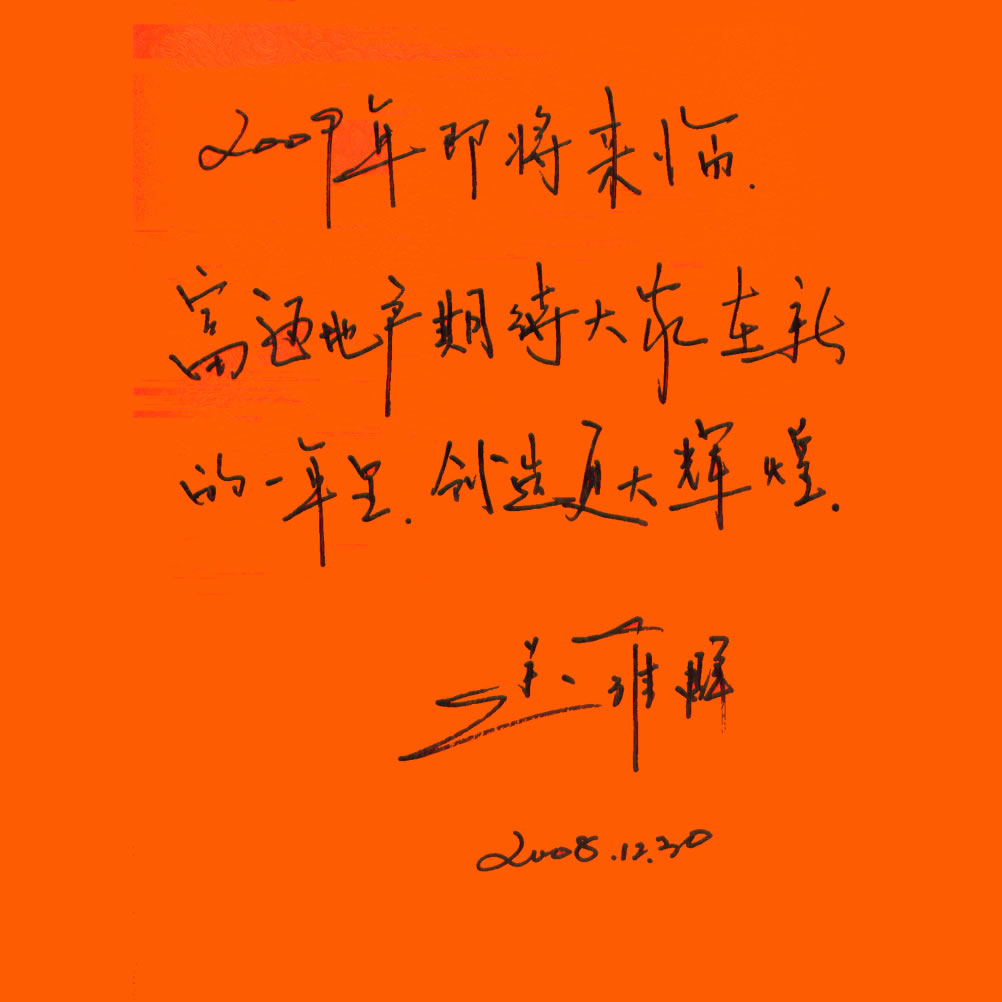 2009年即将来临.
富通地产期待大家在新
的一年里.创造更大辉煌.
2008.12.30